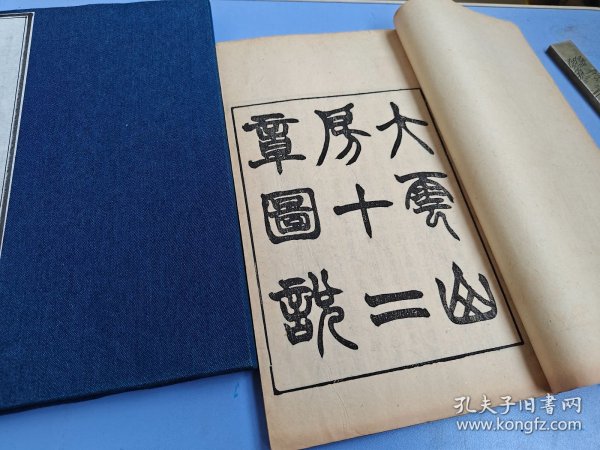 大雲山
房十二
章圖說
孔夫子旧书网
www.kongfz.com